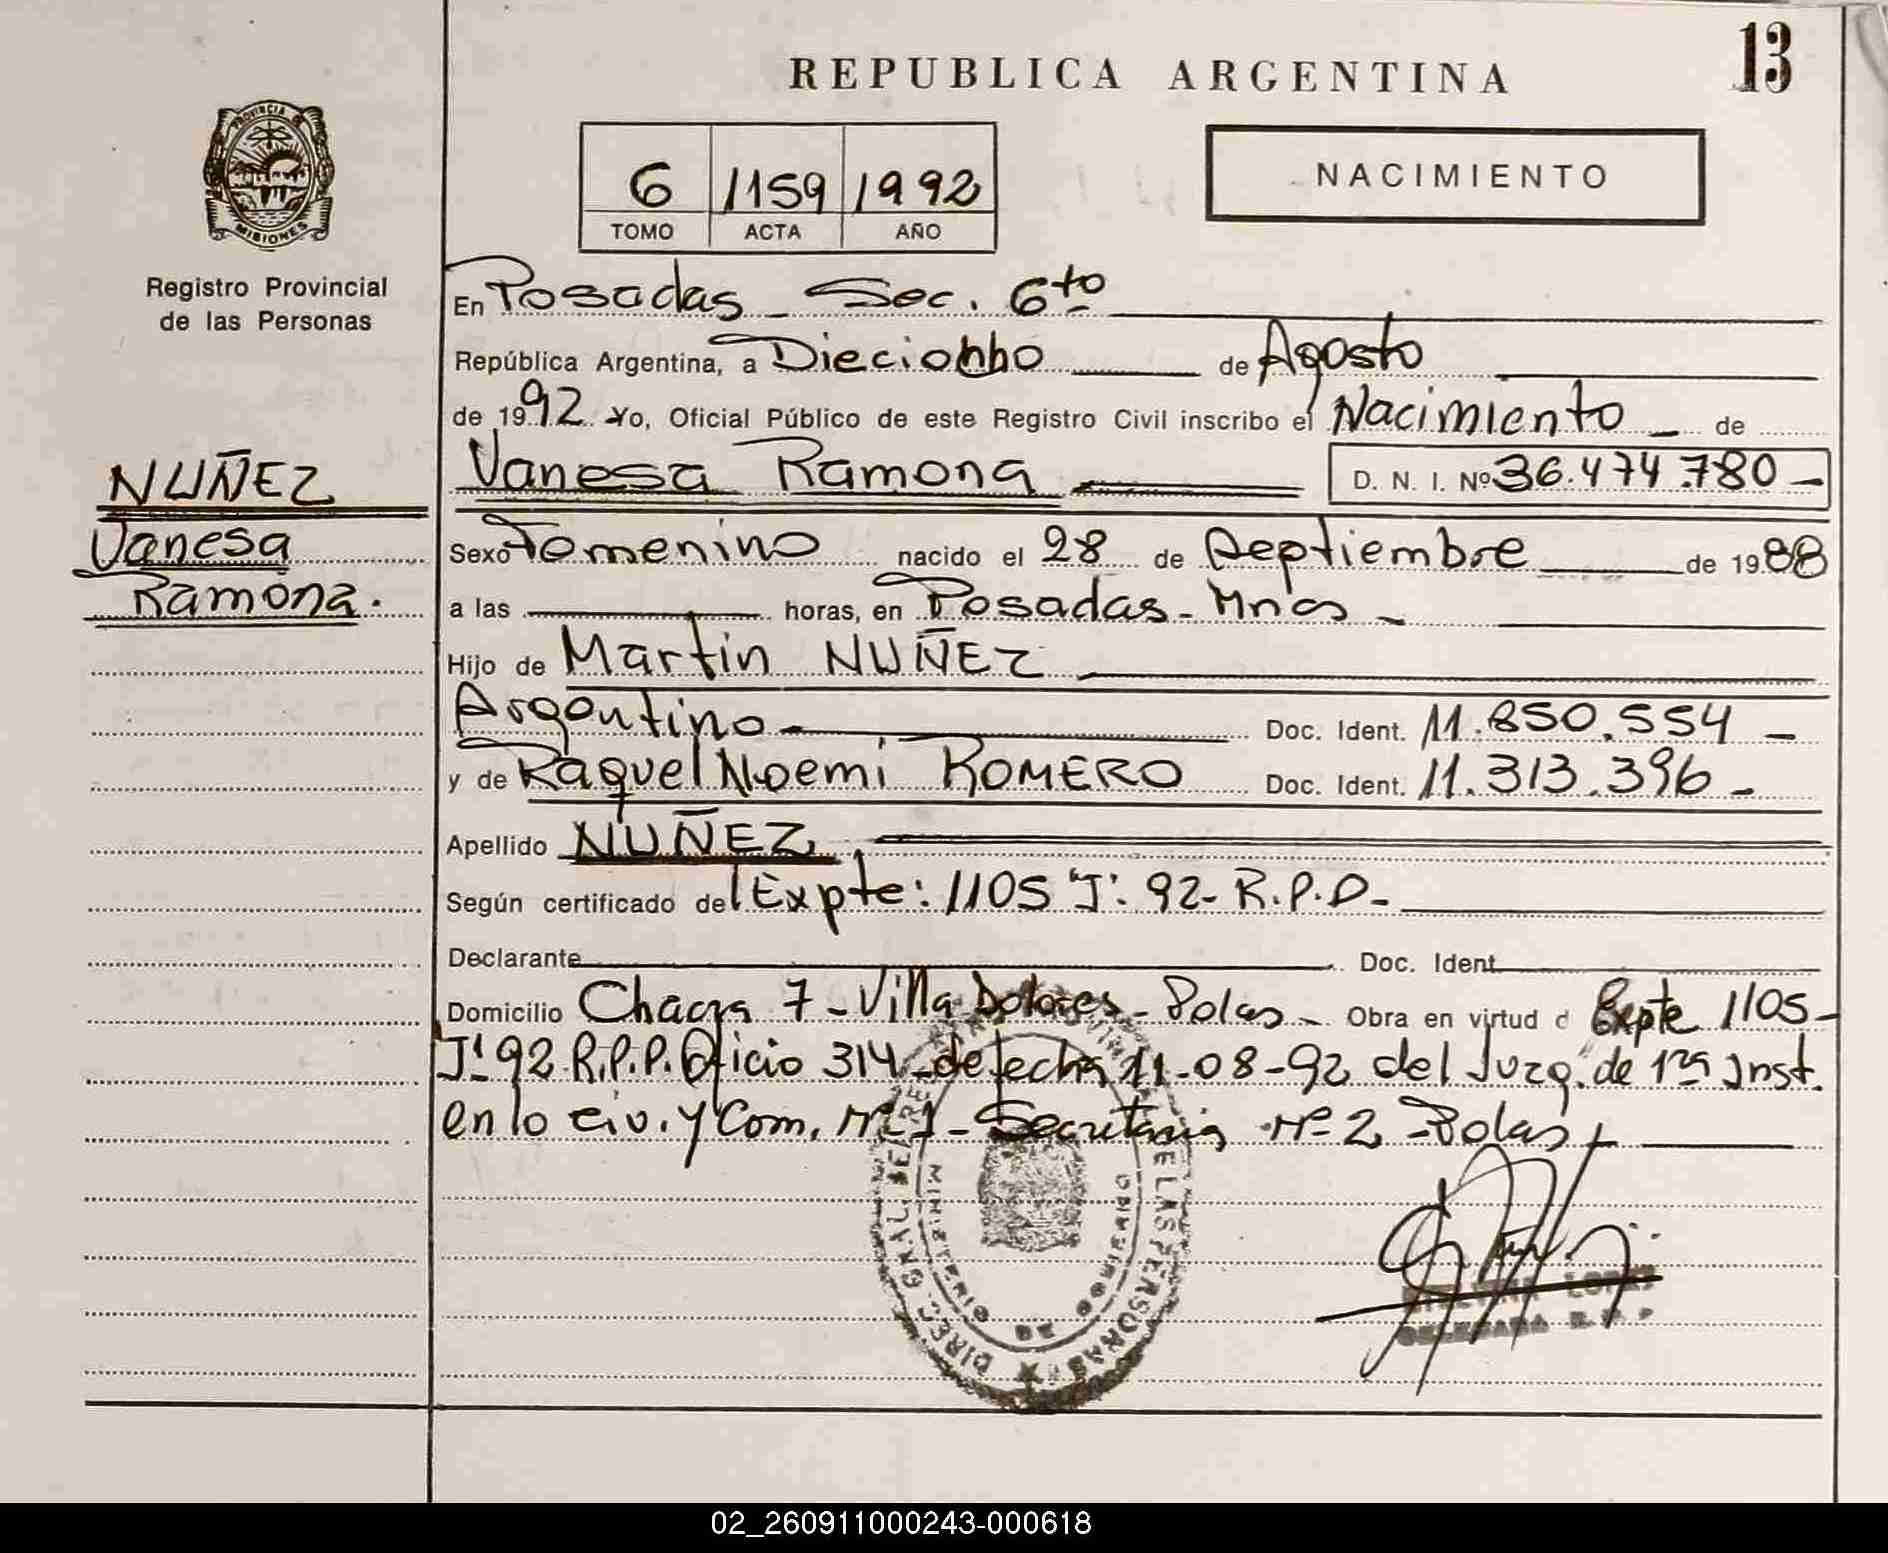 13
REPUBLICA ARGENTINA
PROVINCIA DE
MISIONES
Registro Provincial
de las Personas
6 1159 1992
TOMO ACTA AÑO
NACIMIENTO
En Posadas Sec. 6to
República Argentina, a Dieciohho de Agosto
de 1992 Yo, Oficial Público de este Registro Civil inscribo el Nacimiento de
NUÑEZ
Vanesa
Ramona.
Vanesa Ramona D. N. I. Nº 36.474.780 -
Sexo Femenino nacido el 28 de Septiembre de 1988
a las horas, en Posadas - Mnes -
Hijo de Martin NUÑEZ
Argentino - Doc. Ident. 11.850.554 -
y de Raquel Noemi ROMERO Doc. Ident. 11.313.396 -
Apellido NUÑEZ
Según certificado del Expte: 1105 "J": 92 - R.P.D. -
Declarante Doc. Ident.
Domicilio Chacra 7 - Villa Dolores - Pdas - Obra en virtud d Expte 1105 -
"J" 92 R.P.P. Oficio 314 - de fecha 11-08-92 del Juzg. de 1ra Inst.
en lo civ. y Com. Nº 1 - Secretaria Nº 2 - Pdas
DIREC. GRAL. DE LAS PERSONAS
MINISTERIO DE GOBIERNO
LOPEZ
DELEGADA R.P.P
02_260911000243-000618